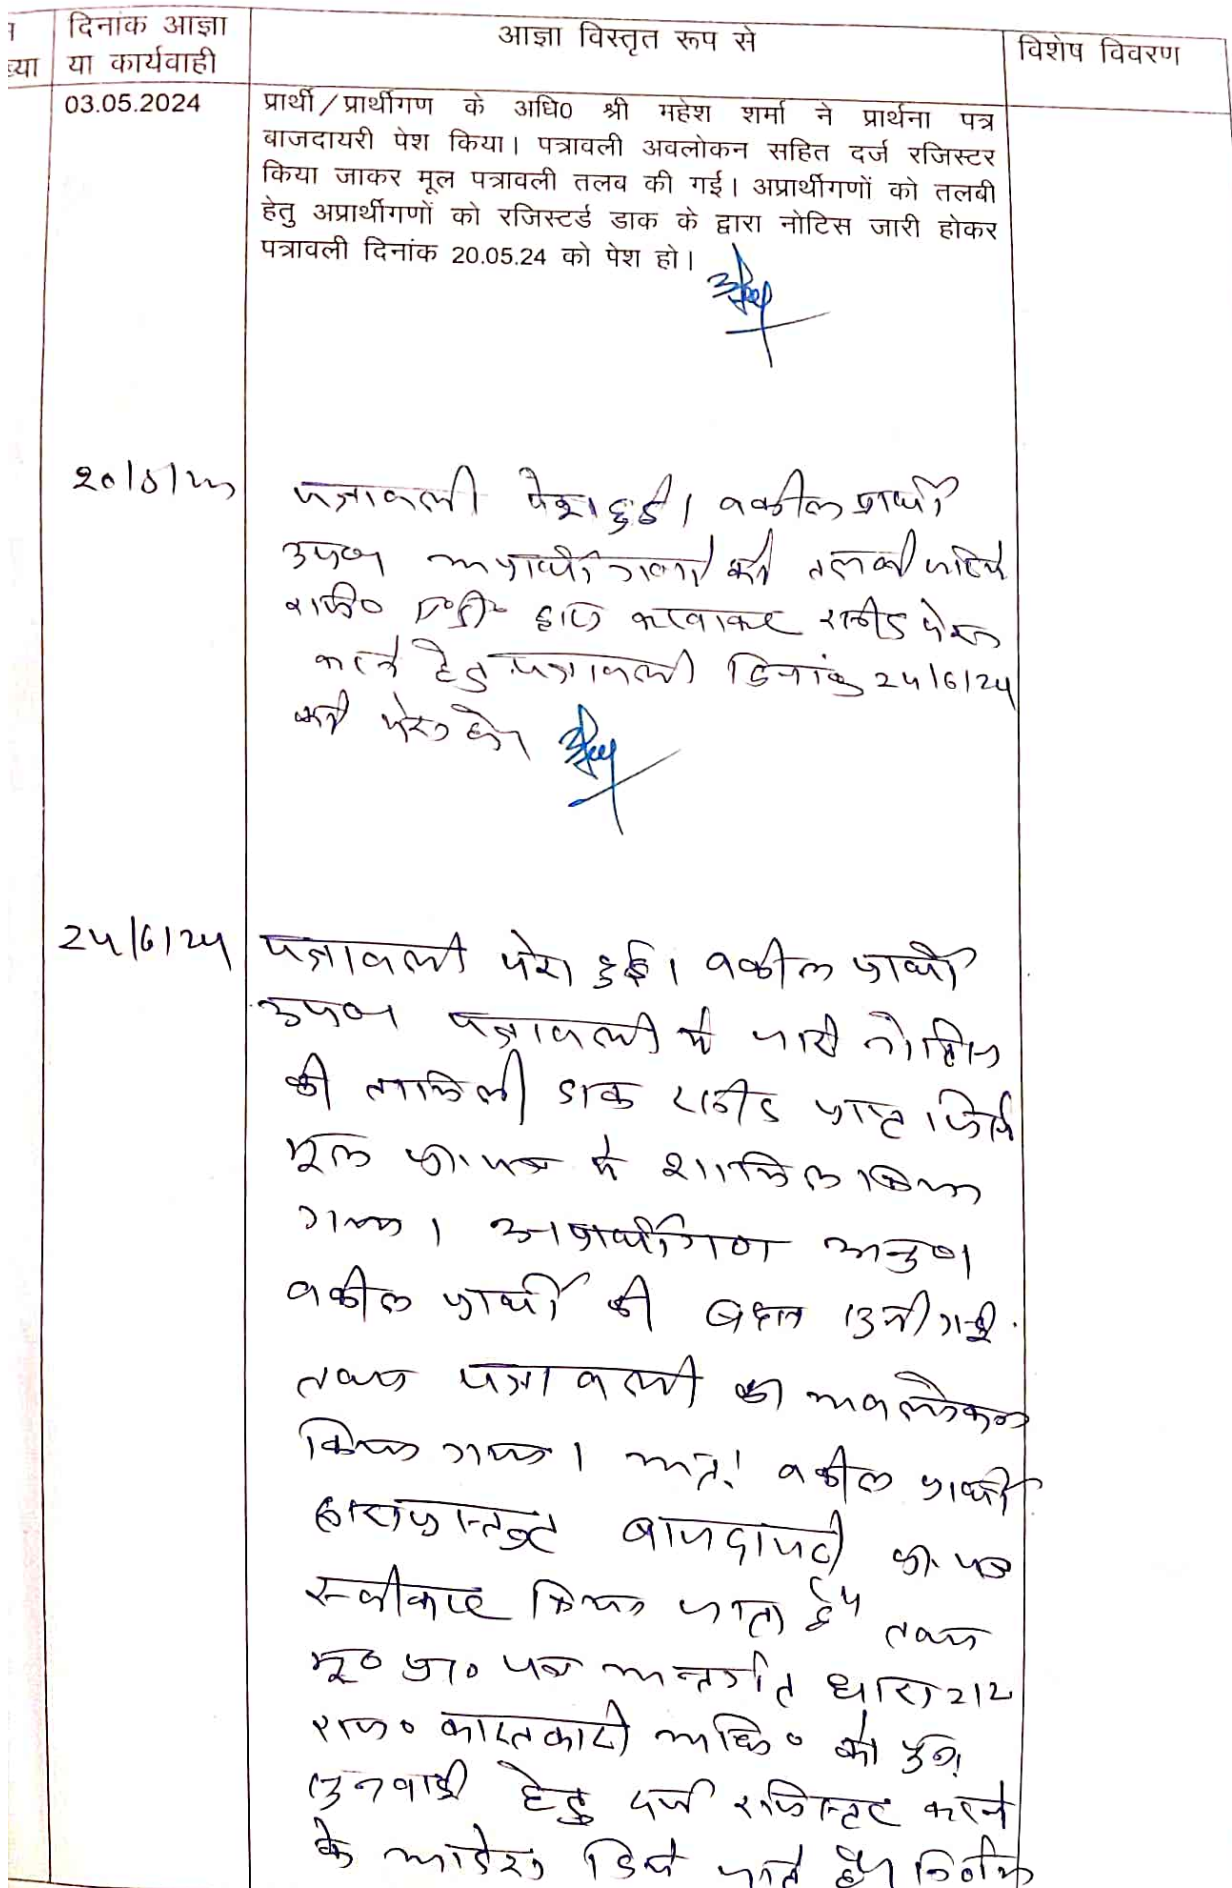 दिनांक आज्ञा
या कार्यवाही
आज्ञा विस्तृत रूप से
विशेष विवरण
ख्या
03.05.2024
प्रार्थी/प्रार्थीगण के अधि0 श्री महेश शर्मा ने प्रार्थना पत्र
बाजदायरी पेश किया। पत्रावली अवलोकन सहित दर्ज रजिस्टर
किया जाकर मूल पत्रावली तलब की गई। अप्रार्थीगणों को तलबी
हेतु अप्रार्थीगणों को रजिस्टर्ड डाक के द्वारा नोटिस जारी होकर
पत्रावली दिनांक 20.05.24 को पेश हो।
20/5/24
पत्रावली पेश हुई। वकील प्रार्थी
उप० अप्रार्थीगणों की तलबी जरिये
रजि० ए०डी० डाक करवाकर रसीद पेश
करने हेतु पत्रावली दिनांक 24/6/24
को पेश हो।
24/6/24
पत्रावली पेश हुई। वकील प्रार्थी
उप० पत्रावली में जारी नोटिस
की तामिली डाक रसीद प्राप्त जिसे
मूल प्रा. पत्र में शामिल किया
गया। अप्रार्थीगण अनु०
वकील प्रार्थी की बहस सुनी गई.
तथा पत्रावली का अवलोकन
किया गया। अतः वकील प्रार्थी
द्वारा प्रस्तुत बाजदायरी प्रा. पत्र
स्वीकार किया जाता है। तथा
मू० प्रा० पत्र अन्तर्गत धारा 212
राज० काश्तकारी अधि० को पुनः
सुनवाई हेतु दर्ज रजिस्टर करने
के आदेश दिये जाते है।